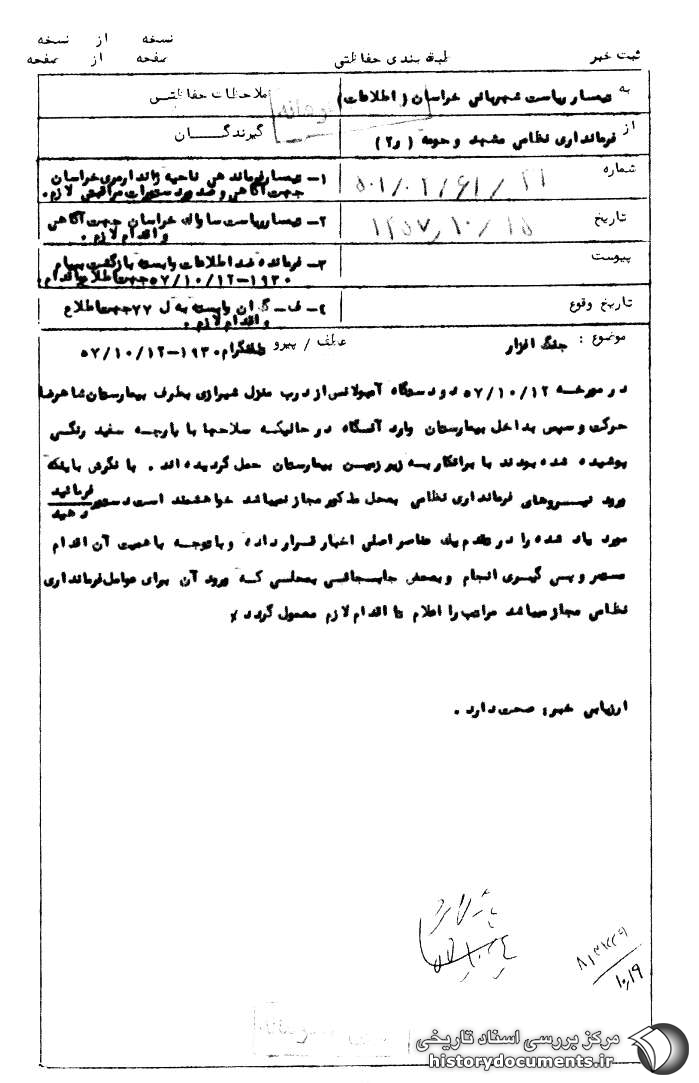 ثبت خبر طبقه بندی حفاظتی نسخه از نسخه
صفحه از صفحه
به تیمسار ریاست شهربانی خراسان ( اطلاعات )
ملاحظات حفاظتی
از فرمانداری نظامی مشهد و حومه ( ر۲ )
گیرندگان
شماره ۵۰۱/۰۲/۶۱/۲۱
۱- تیمسار فرماندهی ناحیه ژاندارمری خراسان
جهت آگاهی و صدور دستورات مراقبتی لازم .
تاریخ ۱۳۵۷/۱۰/۱۵
۲- تیمسار ریاست ساواک خراسان جهت آگاهی
و اقدام لازم .
پیوست
۳- فرمانده ضد اطلاعات وابسته بازگشت بپیام
۱۹۳۰-۵۷/۱۰/۱۲ جهت اطلاع و اقدام
تاریخ وقوع
۴- ف - گ ان وابسته به ل ۷۷ جهت اطلاع
و اقدام لازم .
موضوع : جنگ افزار عطف / پیرو تلگرام ۱۹۳۰-۵۷/۱۰/۱۲
در مورخه ۵۷/۱۰/۱۲ دو دستگاه آمبولانس از درب منزل شیرازی بطرف بیمارستان شاهرضا
حرکت و سپس بداخل بیمارستان وارد آنگاه در حالیکه سلاحها با پارچه سفید رنگی
پوشیده شده بودند با برانکار به زیر زمین بیمارستان حمل گردیده اند . با نگرش باینکه
ورود نیروهای فرمانداری نظامی بمحل مذکور مجاز نمیباشد خواهشمند است دستور فرمائید
دهید
مورد یاد شده را در تقدم یک عناصر اصلی اخبار قرار داده و با توجه باهمیت آن اقدام
مستمر و پی گیری انجام و بمحض جابجائی بمحلی که ورود آن برای عوامل فرمانداری
نظامی مجاز میباشد مراتب را اعلام تا اقدام لازم معمول گردد
ارزیابی خبر : صحت دارد .
۱۰/۱۹
مرکز بررسی اسناد تاریخی
historydocuments.ir